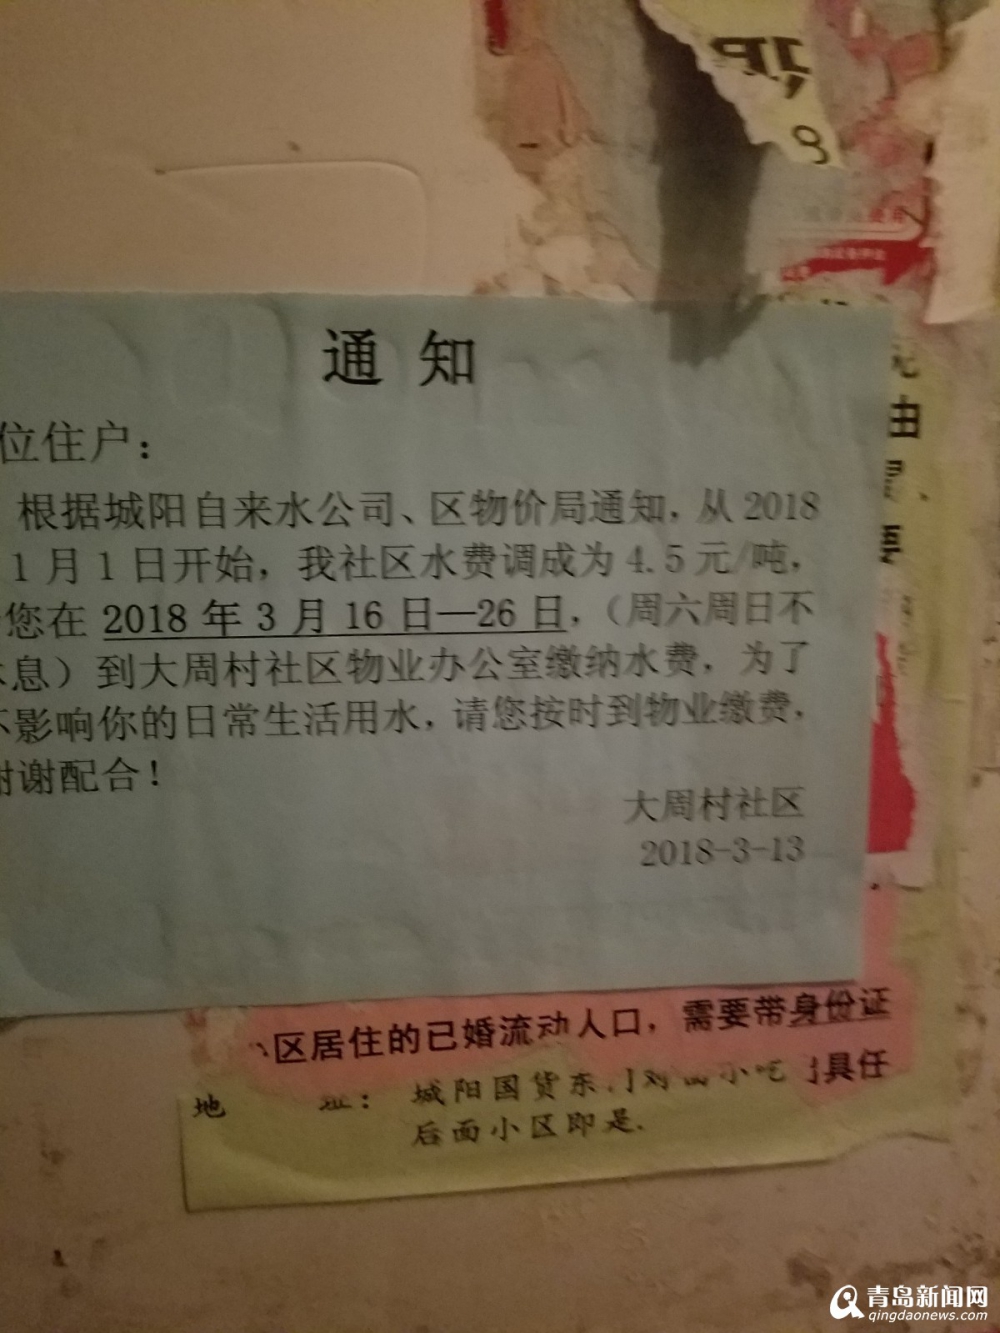 通 知
位住户：
根据城阳自来水公司、区物价局通知，从 2018
1 月 1 日开始，我社区水费调成为 4.5 元/吨，
您在 2018 年 3 月 16 日—26 日，（周六周日不
息）到大周村社区物业办公室缴纳水费，为了
影响你的日常生活用水，请您按时到物业缴费，
谢配合！
大周村社区
2018-3-13
由
要
区居住的已婚流动人口，需要带身份证
具任
地 址： 城阳国货东 小吃
后面小区即是.
青岛新闻网
qingdaonews.com